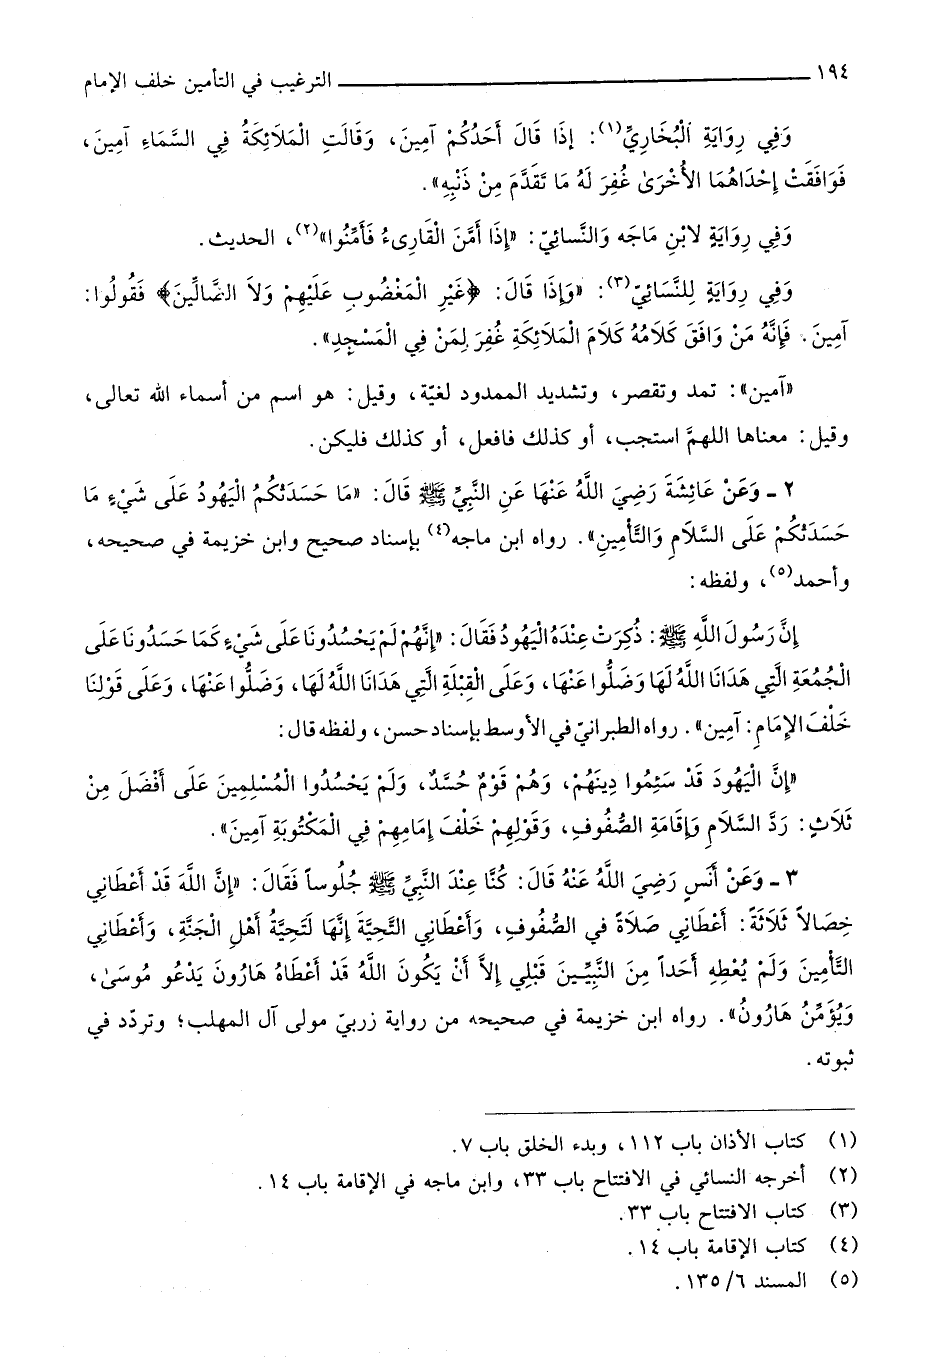 ١٩٤ ــــــــــــ الترغيب في التأمين خلف الإمام
وَفِي رِوَايَةِ الْبُخَارِيِّ(١): إِذَا قَالَ أَحَدُكُمْ آمِينَ، وَقَالَتِ الْمَلَائِكَةُ فِي السَّمَاءِ آمِينَ،
فَوَافَقَتْ إِحْدَاهُمَا الأُخْرَىٰ غُفِرَ لَهُ مَا تَقَدَّمَ مِنْ ذَنْبِهِ».
وَفِي رِوَايَةٍ لابْنِ مَاجَه وَالنَّسائِيّ: «إِذَا أَمَّنَ الْقَارِىءُ فَأَمِّنُوا»(٢)، الحديث.
وَفِي رِوَايَةٍ لِلنَّسَائِيّ(٣): «وَإِذَا قَالَ: ﴿غَيْرِ المَغْضُوبِ عَلَيْهِمْ وَلاَ الضَّالِّينَ﴾ فَقُولُوا:
آمِينَ. فَإِنَّهُ مَنْ وَافَقَ كَلَامُهُ كَلَامَ الْمَلَائِكَةِ غُفِرَ لِمَنْ فِي الْمَسْجِدِ».
«آمين»: تمد وتقصر، وتشديد الممدود لغيّة، وقيل: هو اسم من أسماء الله تعالى،
وقيل: معناها اللهمَّ استجب، أو كذلك فافعل، أو كذلك فليكن.
٢ - وَعَنْ عَائِشَةَ رَضِيَ اللَّهُ عَنْهَا عَنِ النَّبِيِّ ﷺ قَالَ: «مَا حَسَدَتْكُمُ الْيَهُودُ عَلَى شَيْءٍ مَا
حَسَدَتْكُمْ عَلَى السَّلَامِ وَالتَّأْمِينِ». رواه ابن ماجه(٤) بإسناد صحيح وابن خزيمة في صحيحه،
وأحمد(٥)، ولفظه:
إِنَّ رَسُولَ اللَّهِ ﷺ: ذُكِرَتْ عِنْدَهُ الْيَهُودُ فَقَالَ: «إِنَّهُمْ لَمْ يَحْسُدُونَا عَلَى شَيْءٍ كَمَا حَسَدُونَا عَلَى
الْجُمُعَةِ الَّتِي هَدَانَا اللَّهُ لَهَا وَضَلُّوا عَنْهَا، وَعَلَى الْقِبْلَةِ الَّتِي هَدَانَا اللَّهُ لَهَا، وَضَلُّوا عَنْهَا، وَعَلَى قَوْلِنَا
خَلْفَ الإِمَامِ: آمِين». رواه الطبرانيّ في الأوسط بإسناد حسن، ولفظه قال:
«إِنَّ الْيَهُودَ قَدْ سَئِمُوا دِينَهُمْ، وَهُمْ قَوْمٌ حُسَّدٌ، وَلَمْ يَحْسُدُوا الْمُسْلِمِينَ عَلَى أَفْضَلَ مِنْ
ثَلَاثٍ: رَدِّ السَّلَامِ وَإِقَامَةِ الصُّفُوفِ، وَقَوْلِهِمْ خَلْفَ إِمَامِهِمْ فِي الْمَكْتُوبَةِ آمِينَ».
٣ - وَعَنْ أَنَسٍ رَضِيَ اللَّهُ عَنْهُ قَالَ: كُنَّا عِنْدَ النَّبِيِّ ﷺ جُلُوساً فَقَالَ: «إِنَّ اللَّهَ قَدْ أَعْطَانِي
خِصَالاً ثَلَاثَةً: أَعْطَانِي صَلَاةً في الصُّفُوفِ، وَأَعْطَانِي التَّحِيَّةَ إِنَّهَا لَتَحِيَّةُ أَهْلِ الْجَنَّةِ، وَأَعْطَانِي
التَّأْمِينَ وَلَمْ يُعْطِهِ أَحَداً مِنَ النَّبِيِّينَ قَبْلِي إِلاَّ أَنْ يَكُونَ اللَّهُ قَدْ أَعْطَاهُ هَارُونَ يَدْعُو مُوسَىٰ،
وَيُؤَمِّنُ هَارُونُ». رواه ابن خزيمة في صحيحه من رواية زربيّ مولى آل المهلب؛ وتردّد في
ثبوته.
(١) كتاب الأذان باب ١١٢، وبدء الخلق باب ٧.
(٢) أخرجه النسائي في الافتتاح باب ٣٣، وابن ماجه في الإقامة باب ١٤.
(٣) كتاب الافتتاح باب ٣٣.
(٤) كتاب الإقامة باب ١٤.
(٥) المسند ٦/ ١٣٥.